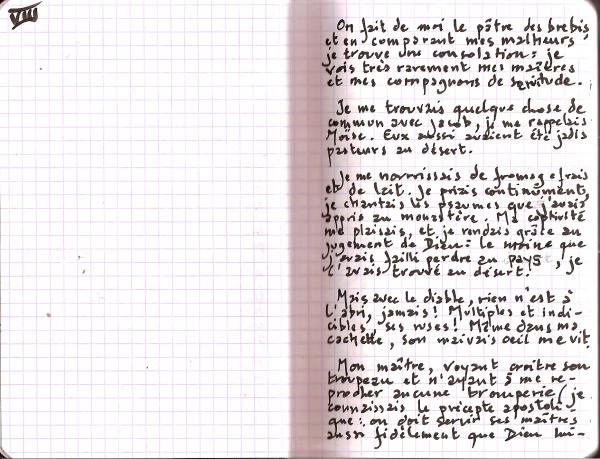 VIII
On fait de moi le pâtre des brebis
et en comparant mes malheurs
je trouve une consolation : je
vois très rarement mes maîtres
et mes compagnons de servitude.
Je me trouvais quelque chose de
commun avec Jacob, je me rappelais
Moïse. Eux aussi avaient été jadis
pasteurs au désert.
Je me nourrissais de fromage frais
et de lait. Je priais continûment,
je chantais les psaumes que j'avais
appris au monastère. Ma captivité
me plaisait, et je rendais grâce au
jugement de Dieu : le moine que
j'avais failli perdre au pays, je
l'avais trouvé au désert!
Mais avec le diable, rien n'est à
l'abri, jamais! Multiples et indi-
cibles, ses ruses! Même dans ma
cachette, son mauvais oeil me vit.
Mon maître, voyant croître son
troupeau et n'ayant à me re-
procher aucune tromperie (je
connaissais le précepte apostoli-
que : on doit servir ses maîtres
aussi fidèlement que Dieu lui-